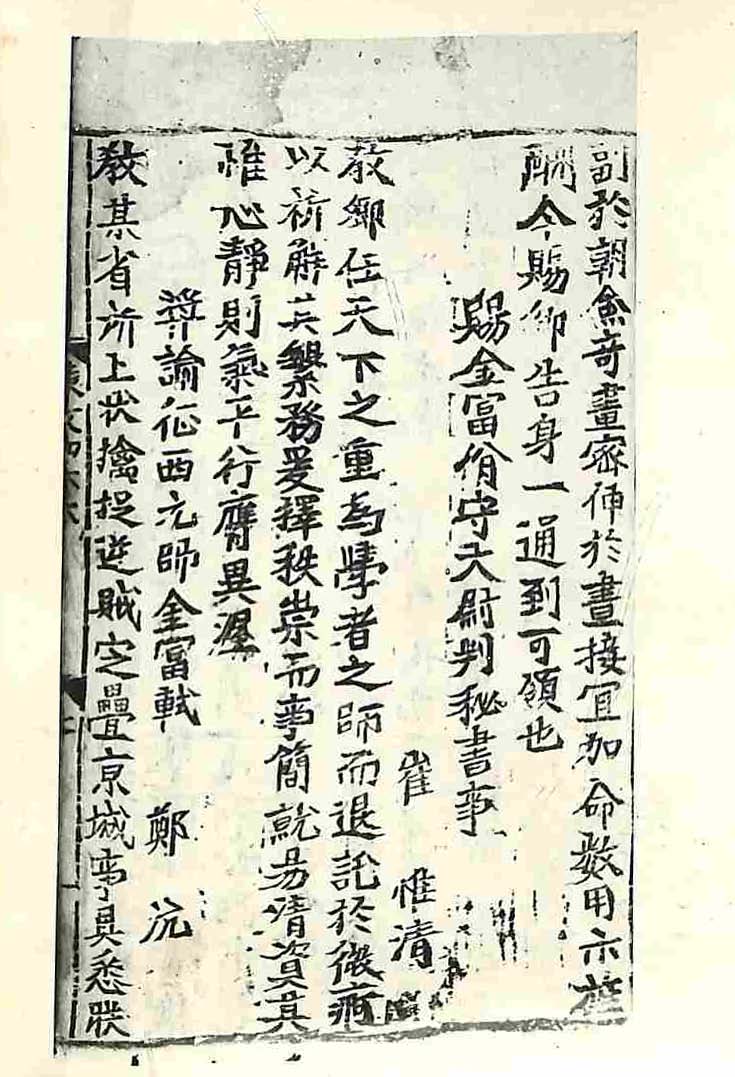 副於朝僉奇畫密伸於晝接宜加命數用示旌
酬今賜卿告身一通到可領也
賜金富佾守大尉判秘書事
崔惟清
教卿任天下之重爲學者之師而退託於微痾
以祈解其繁務爰擇秩崇而事簡就易情資其
惟心靜則氣平行膺異渥
奬諭征西元帥金富軾 鄭沆
教某省所上狀擒捉逆賊定疊京城事具悉狀